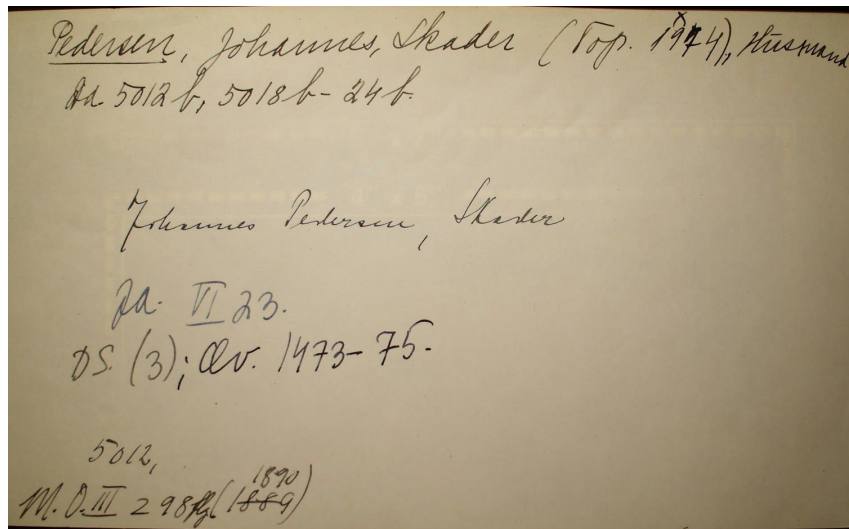 Pedersen, Johannes, Skader (Top. 1974), Husmand
5012b, 5018b - 24b.
Johannes Pedersen, Skader
VI 23.
DS. (3); Æv. 1473-75.
5012,
1890
M. O. III 298 flg (1889)